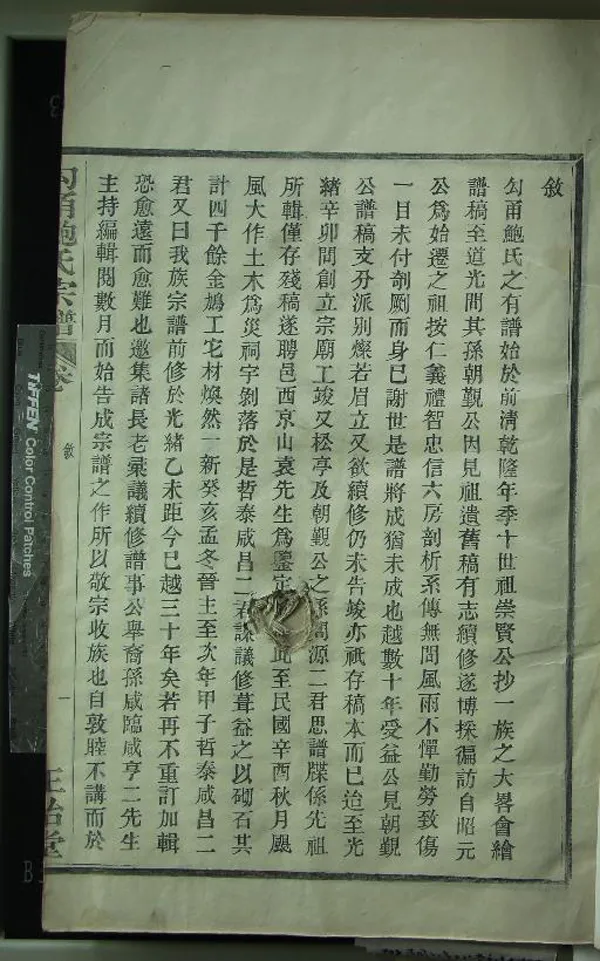 敘
勾甬鮑氏之有譜始於前清乾隆年季十世祖崇賢公抄一族之大畧會繪
譜稿至道光間其孫朝覲公因見祖遺舊稿有志續修遂博採徧訪自昭元
公為始遷之祖按仁義禮智忠信六房剖析系傳無間風雨不憚勤勞致傷
一目未付剞劂而身已謝世是譜將成猶未成也越數十年受益公見朝覲
公譜稿支分派別燦若眉立又欲續修仍未告竣亦祇存稿本而已迨至光
緒辛卯間創立宗廟工竣又松亭及朝覲公之孫問源二君思譜牒係先祖
所輯僅存殘稿遂聘邑西京山袁先生為鑒定 此至民國辛酉秋月颶
風大作土木為災祠宇剝落於是哲泰咸昌二君謀議修葺益之以砌石共
計四千餘金鳩工宅材煥然一新癸亥孟冬晉主至次年甲子哲泰咸昌二
君又曰我族宗譜前修於光緒乙未距今已越三十年矣若再不重訂加輯
恐愈遠而愈難也邀集諸長老彚議續修譜事公舉裔孫咸臨咸亨二先生
主持編輯閱數月而始告成宗譜之作所以敬宗收族也自敦睦不講而於
勾甬鮑氏宗譜
卷
敘
一
TIFFEN Color Control Patches